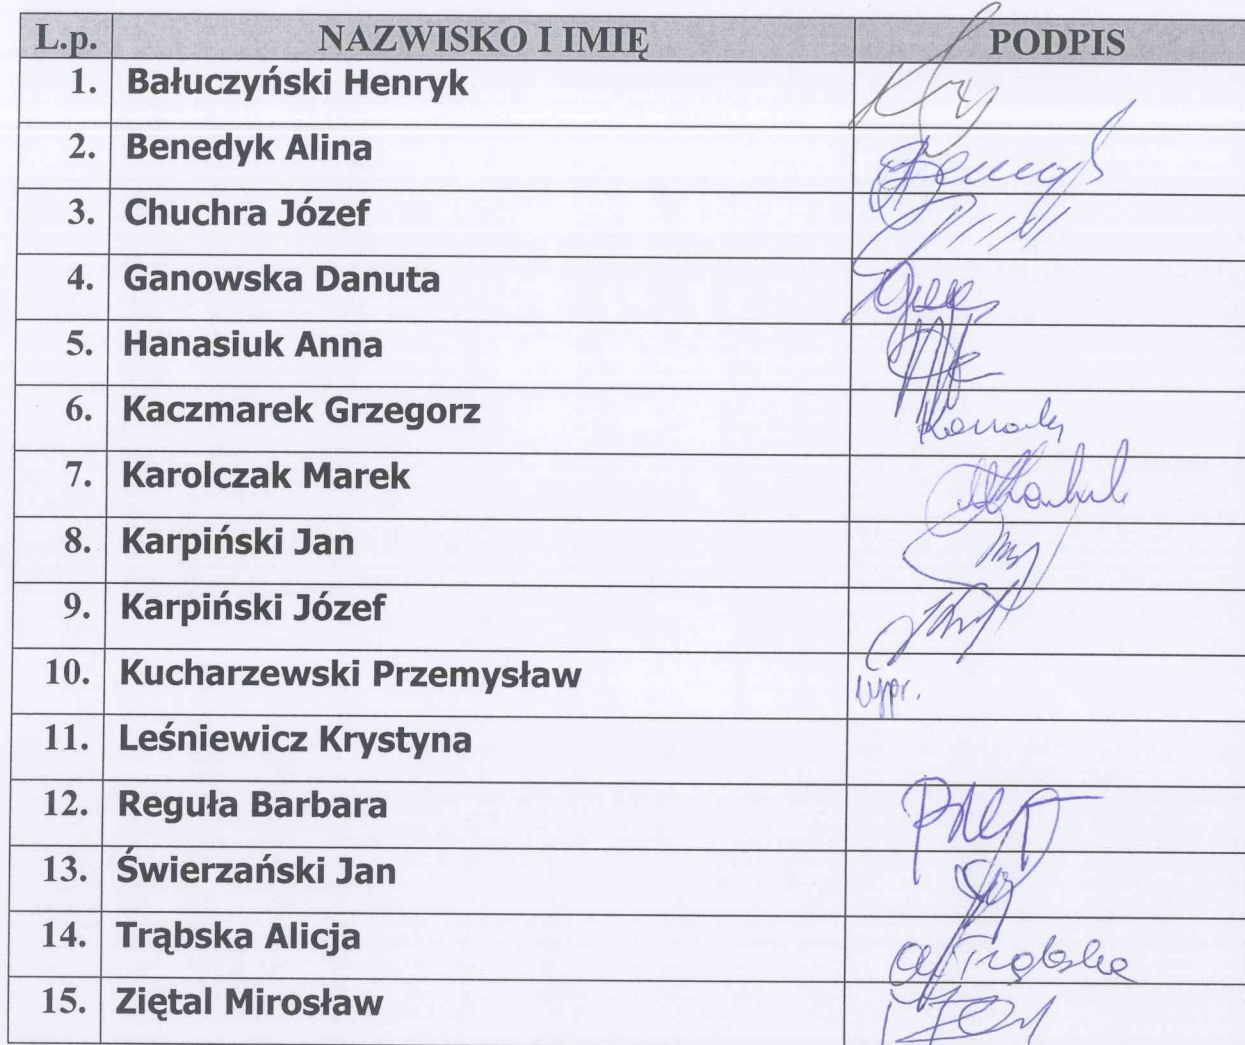 L.p. NAZWISKO I IMIĘ PODPIS
1. Bałuczyński Henryk
2. Benedyk Alina
3. Chuchra Józef
4. Ganowska Danuta
5. Hanasiuk Anna
6. Kaczmarek Grzegorz
7. Karolczak Marek
8. Karpiński Jan
9. Karpiński Józef
10. Kucharzewski Przemysław
11. Leśniewicz Krystyna
12. Reguła Barbara
13. Świerzański Jan
14. Trąbska Alicja ATrąbska
15. Ziętal Mirosław